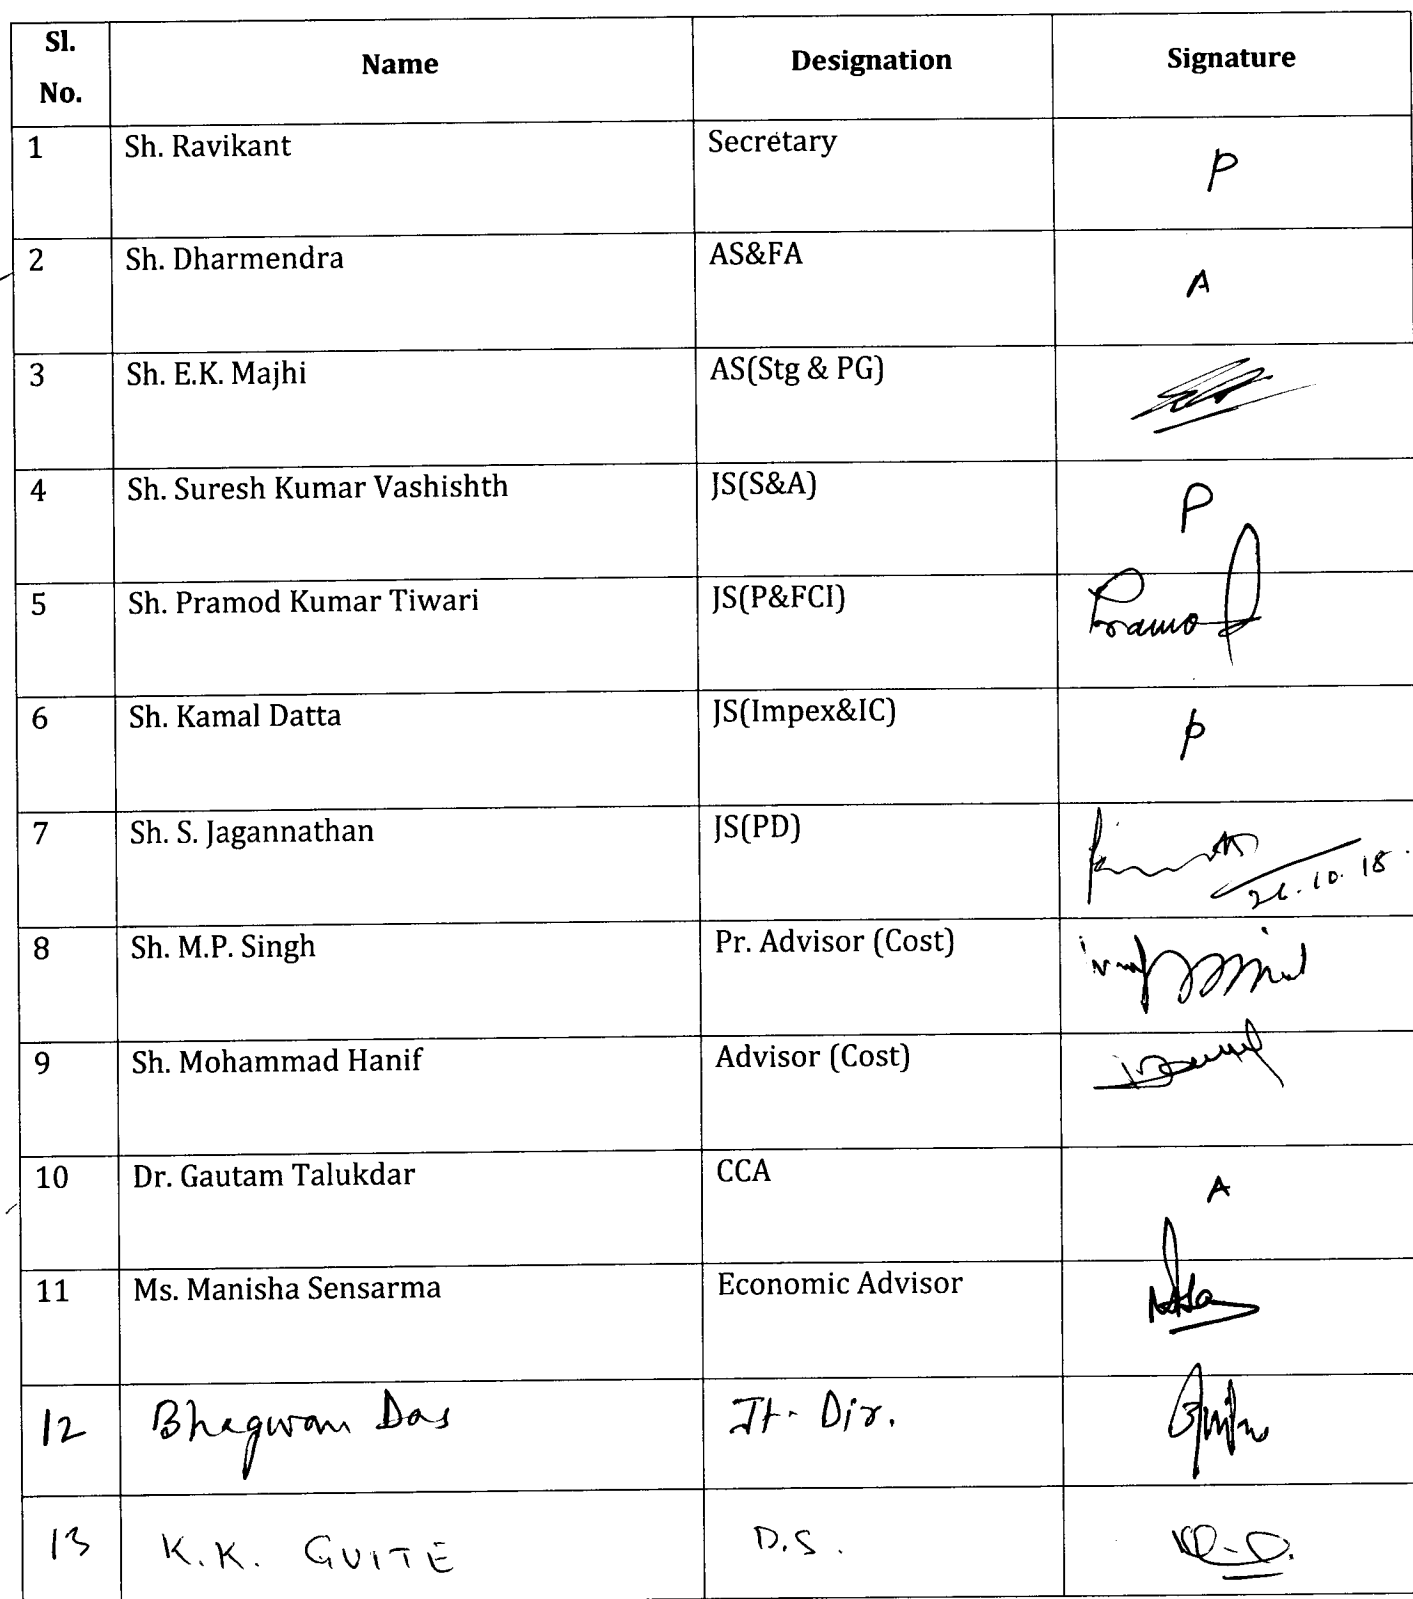 Sl. No. Name Designation Signature
1 Sh. Ravikant Secretary P
2 Sh. Dharmendra AS&FA A
3 Sh. E.K. Majhi AS(Stg & PG)
4 Sh. Suresh Kumar Vashishth JS(S&A) P
5 Sh. Pramod Kumar Tiwari JS(P&FCI) Pramod
6 Sh. Kamal Datta JS(Impex&IC) P
7 Sh. S. Jagannathan JS(PD)
26.10.18.
8 Sh. M.P. Singh Pr. Advisor (Cost)
9 Sh. Mohammad Hanif Advisor (Cost)
10 Dr. Gautam Talukdar CCA A
11 Ms. Manisha Sensarma Economic Advisor
12 Bhagwan Das Jt. Dir.
13 K.K. GUITE D.S.